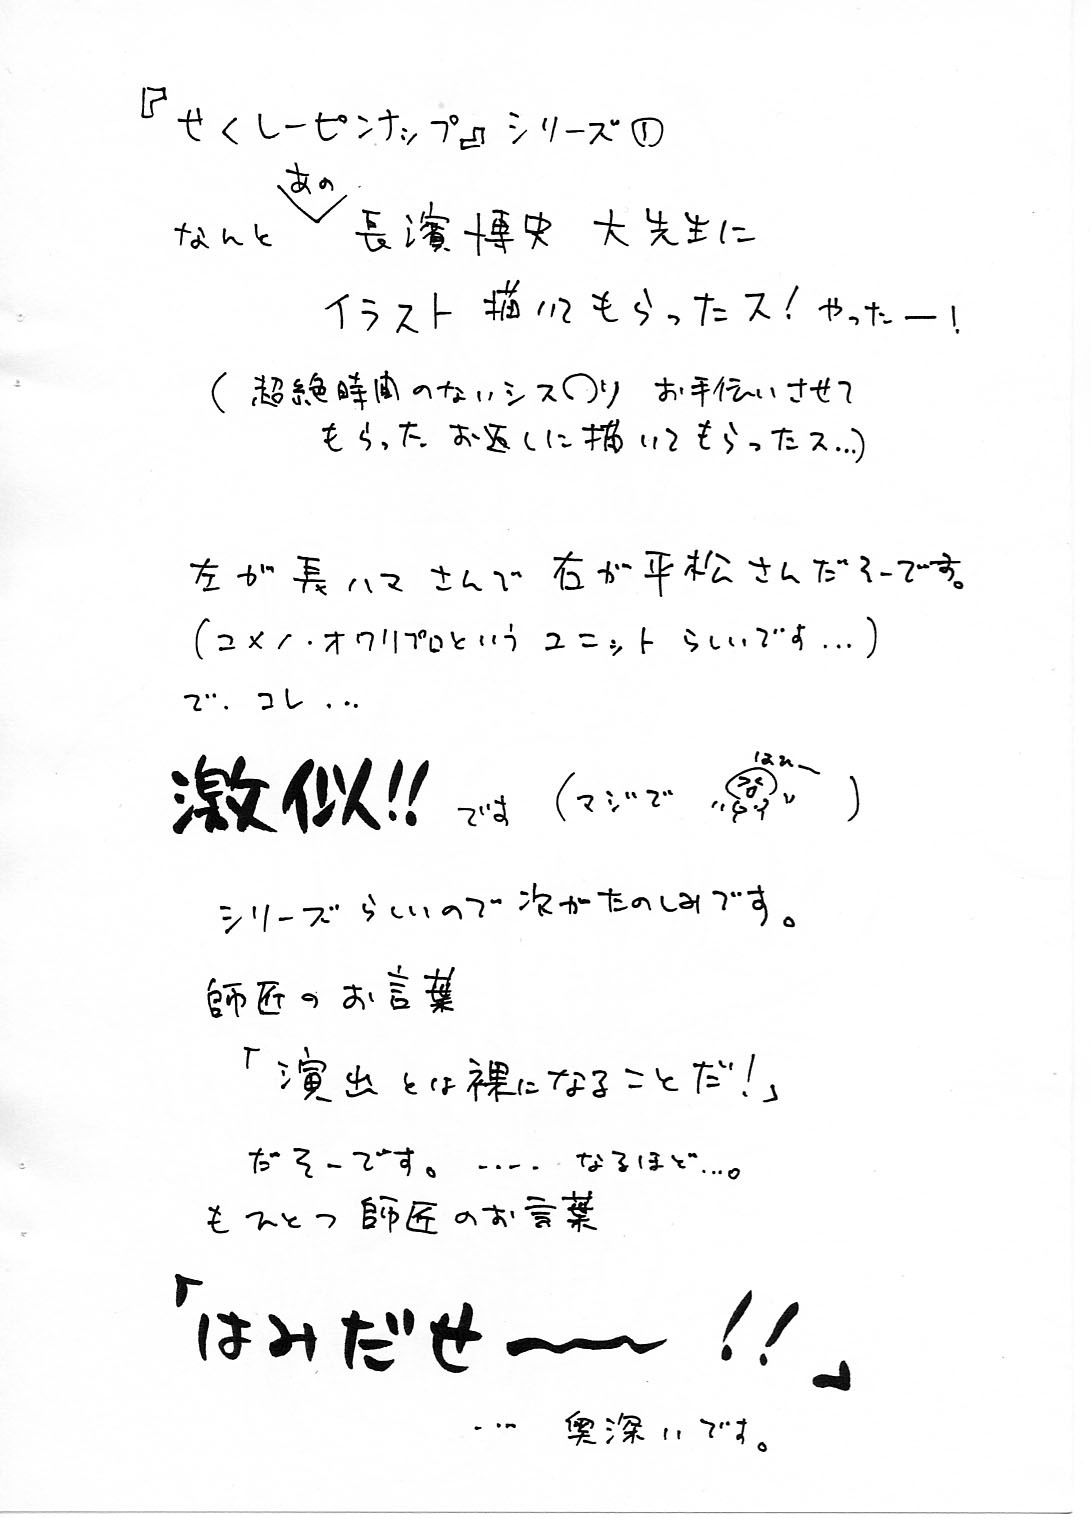 『せくしーピンナップ』シリーズ①
あの
なんと 長濱博史 大先生に
イラスト 描いてもらったス! やったー!
(超絶時間のないシス○り お手伝いさせて
もらった お返しに描いてもらったス…)
左が長ハマさんで 右が平松さんだそーです。
(ユメノ・オワリプロという ユニット らしいです…)
で、コレ…
激似!! です (マジで はれー )
シリーズらしいので次がたのしみです。
師匠のお言葉
「演出とは裸になることだ!」
だそーです。 ‥‥ なるほど…。
もひとつ師匠のお言葉
「はみだせ〜!!」
… 奥深いです。